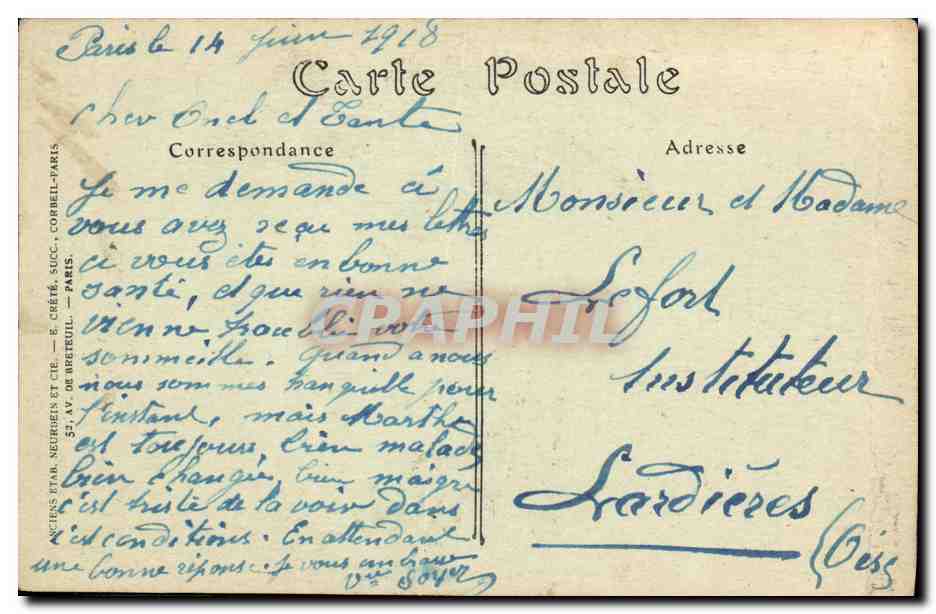 Paris le 14 Juin 1918
Carte Postale
Cher Oncl et Tante
Correspondance
Je me demande ci
vous avez reçu mes lettres
ci vous êtes en bonne
santé, et que rien ne
vienne troublé votre
sommeille. Quand a nous
nous sommes tranquille pour
l'instant, mais Marthe
est toujours bien malade
bien changée, bien maigre
c'est triste de la voir dans
c'est conditions. En attendant
une bonne réponse je vous embrasse
Vve Soyer
Adresse
Monsieur et Madame
Lefort
Instituteur
Lardières
(Oise
ANCIENS ETAB. NEURDEIN ET CIE. — E. CRÉTÉ, SUCC., CORBEIL-PARIS
52, AV. DE BRETEUIL. — PARIS.
CPAPHIL